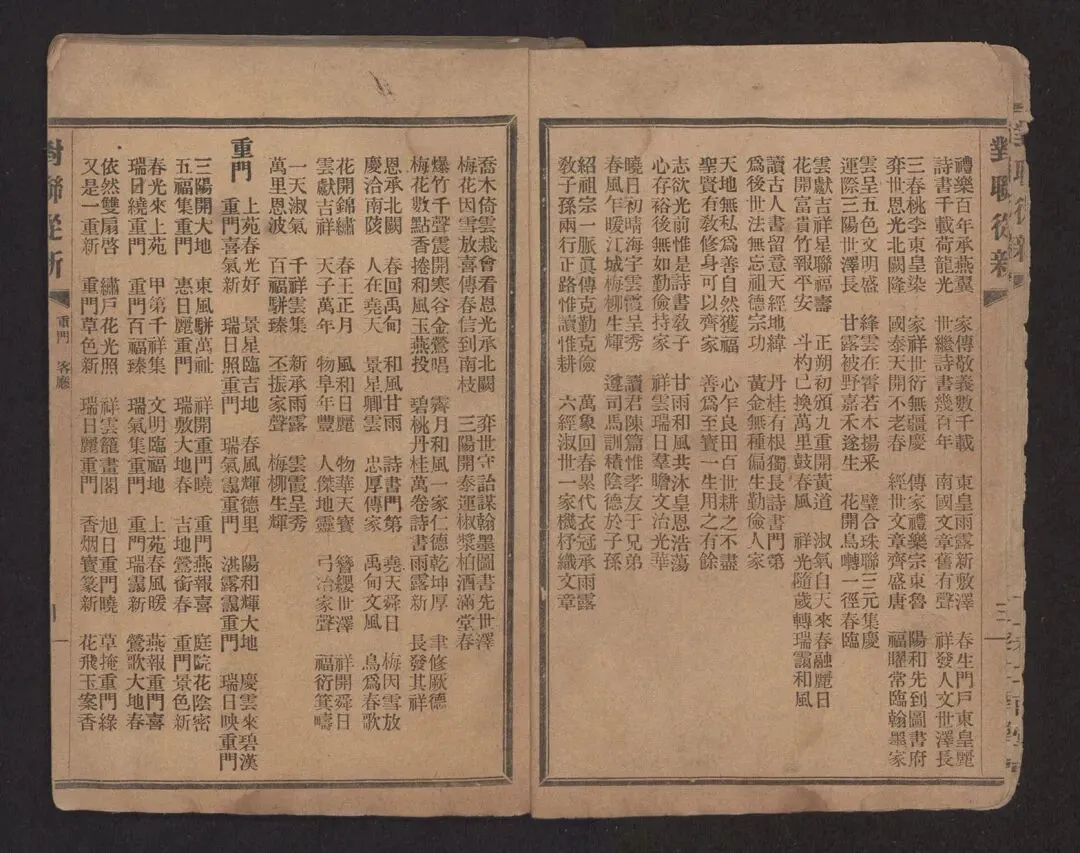 對聯從新
三
禮樂百年承燕翼 家傳敬義數千載 東皇雨露新敷澤 春生門戶東皇麗
詩書千載荷龍光 世繼詩書幾百年 南國文章舊有聲 祥發人文世澤長
三春桃李東皇染 家祥世衍無疆慶 傳家禮樂宗東魯 陽和先到圖書府
弈世恩光北闕隆 國泰天開不老春 經世文章齊盛唐 福曜常臨翰墨家
雲呈五色文明盛 絳雲在霄若木揚釆 璧合珠聯三元集慶
運際三陽世澤長 甘露被野嘉禾遂生 花開鳥囀一徑春臨
雲獻吉祥星聯福壽 正朔初頒九重開黃道 淑氣自天來春融麗日
花開富貴竹報平安 斗杓已換萬里鼓春風 祥光隨歲轉瑞靄和風
讀古人書留意天經地緯 丹桂有根獨長詩書門第
為後世法無忘祖德宗功 黃金無種偏生勤儉人家
天地無私為善自然獲福 心乍良田百世耕之不盡
聖賢有敎修身可以齊家 善為至寶一生用之有餘
志欲光前惟是詩書敎子 甘雨和風共沐皇恩浩蕩
心存裕後無如勤儉持家 祥雲瑞日羣瞻文治光華
曉日初晴海宇雲霞呈秀 讀君陳篇惟孝友于兄弟
春風乍暖江城梅柳生輝 遵司馬訓積陰德於子孫
紹祖宗一脈眞傳克勤克儉 萬象回春累代衣冠承雨露
敎子孫兩行正路惟讀惟耕 六經淑世一家機杼織文章
喬木倚雲栽會看恩光承北闕 弈世守詒謀翰墨圖書先世澤
梅花因雪放喜傳春信到南枝 三陽開泰運椒漿柏酒滿堂春
爆竹千聲震開寒谷金鶯唱 霽月和風一家仁德乾坤厚 聿修厥德
梅花數點香捲和風玉燕投 碧桃丹桂萬卷詩書雨露新 長發其祥
恩承北闕 春回禹甸 和風甘雨 詩書門第 堯天舜日 梅因雪放
慶洽南陔 人在堯天 景星卿雲 忠厚傳家 禹甸文風 鳥為春歌
花開錦繡 春王正月 風和日麗 物華天寶 簪纓世澤 祥開舜日
雲獻吉祥 天子萬年 物阜年豐 人傑地靈 弓冶家聲 福衍箕疇
一天淑氣 千祥雲集 新承雨露 雲霞呈秀
萬里恩波 百福駢臻 丕振家聲 梅柳生輝
重門
上苑春光好 景星臨吉地 春風輝德里 陽和輝大地 慶雲來碧漢
重門喜氣新 瑞日照重門 瑞氣靄重門 洪露靄重門 瑞日映重門
三陽開大地 東風駢萬祉 祥開重門曉 重門燕報喜 庭院花陰密
五福集重門 惠日麗重門 瑞敷大地春 吉地鶯銜春 重門景色新
春光來上苑 甲第千祥集 文明臨福地 上苑春風暖 燕報重門喜
瑞日繞重門 重門百福臻 瑞氣集重門 重門瑞靄新 鶯歌大地春
依然雙扇啓 繡戶花光照 祥雲籠畫閣 旭日重門曉 草掩重門綠
又是一重新 重門草色新 瑞日麗重門 香烟寶篆新 花飛玉案香
對聯從新
重門 客廳